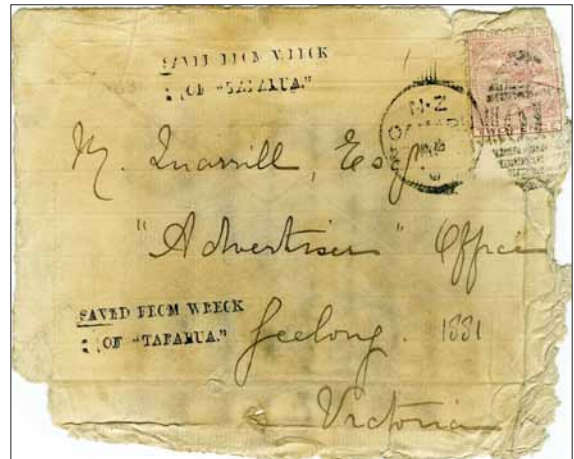 SAVED FROM WRECK
OF "TARARUA."
N.Z
M. Quarrill, Esq
"Advertiser" Office
SAVED FROM WRECK
OF "TARARUA."
Geelong. 1881
Victoria